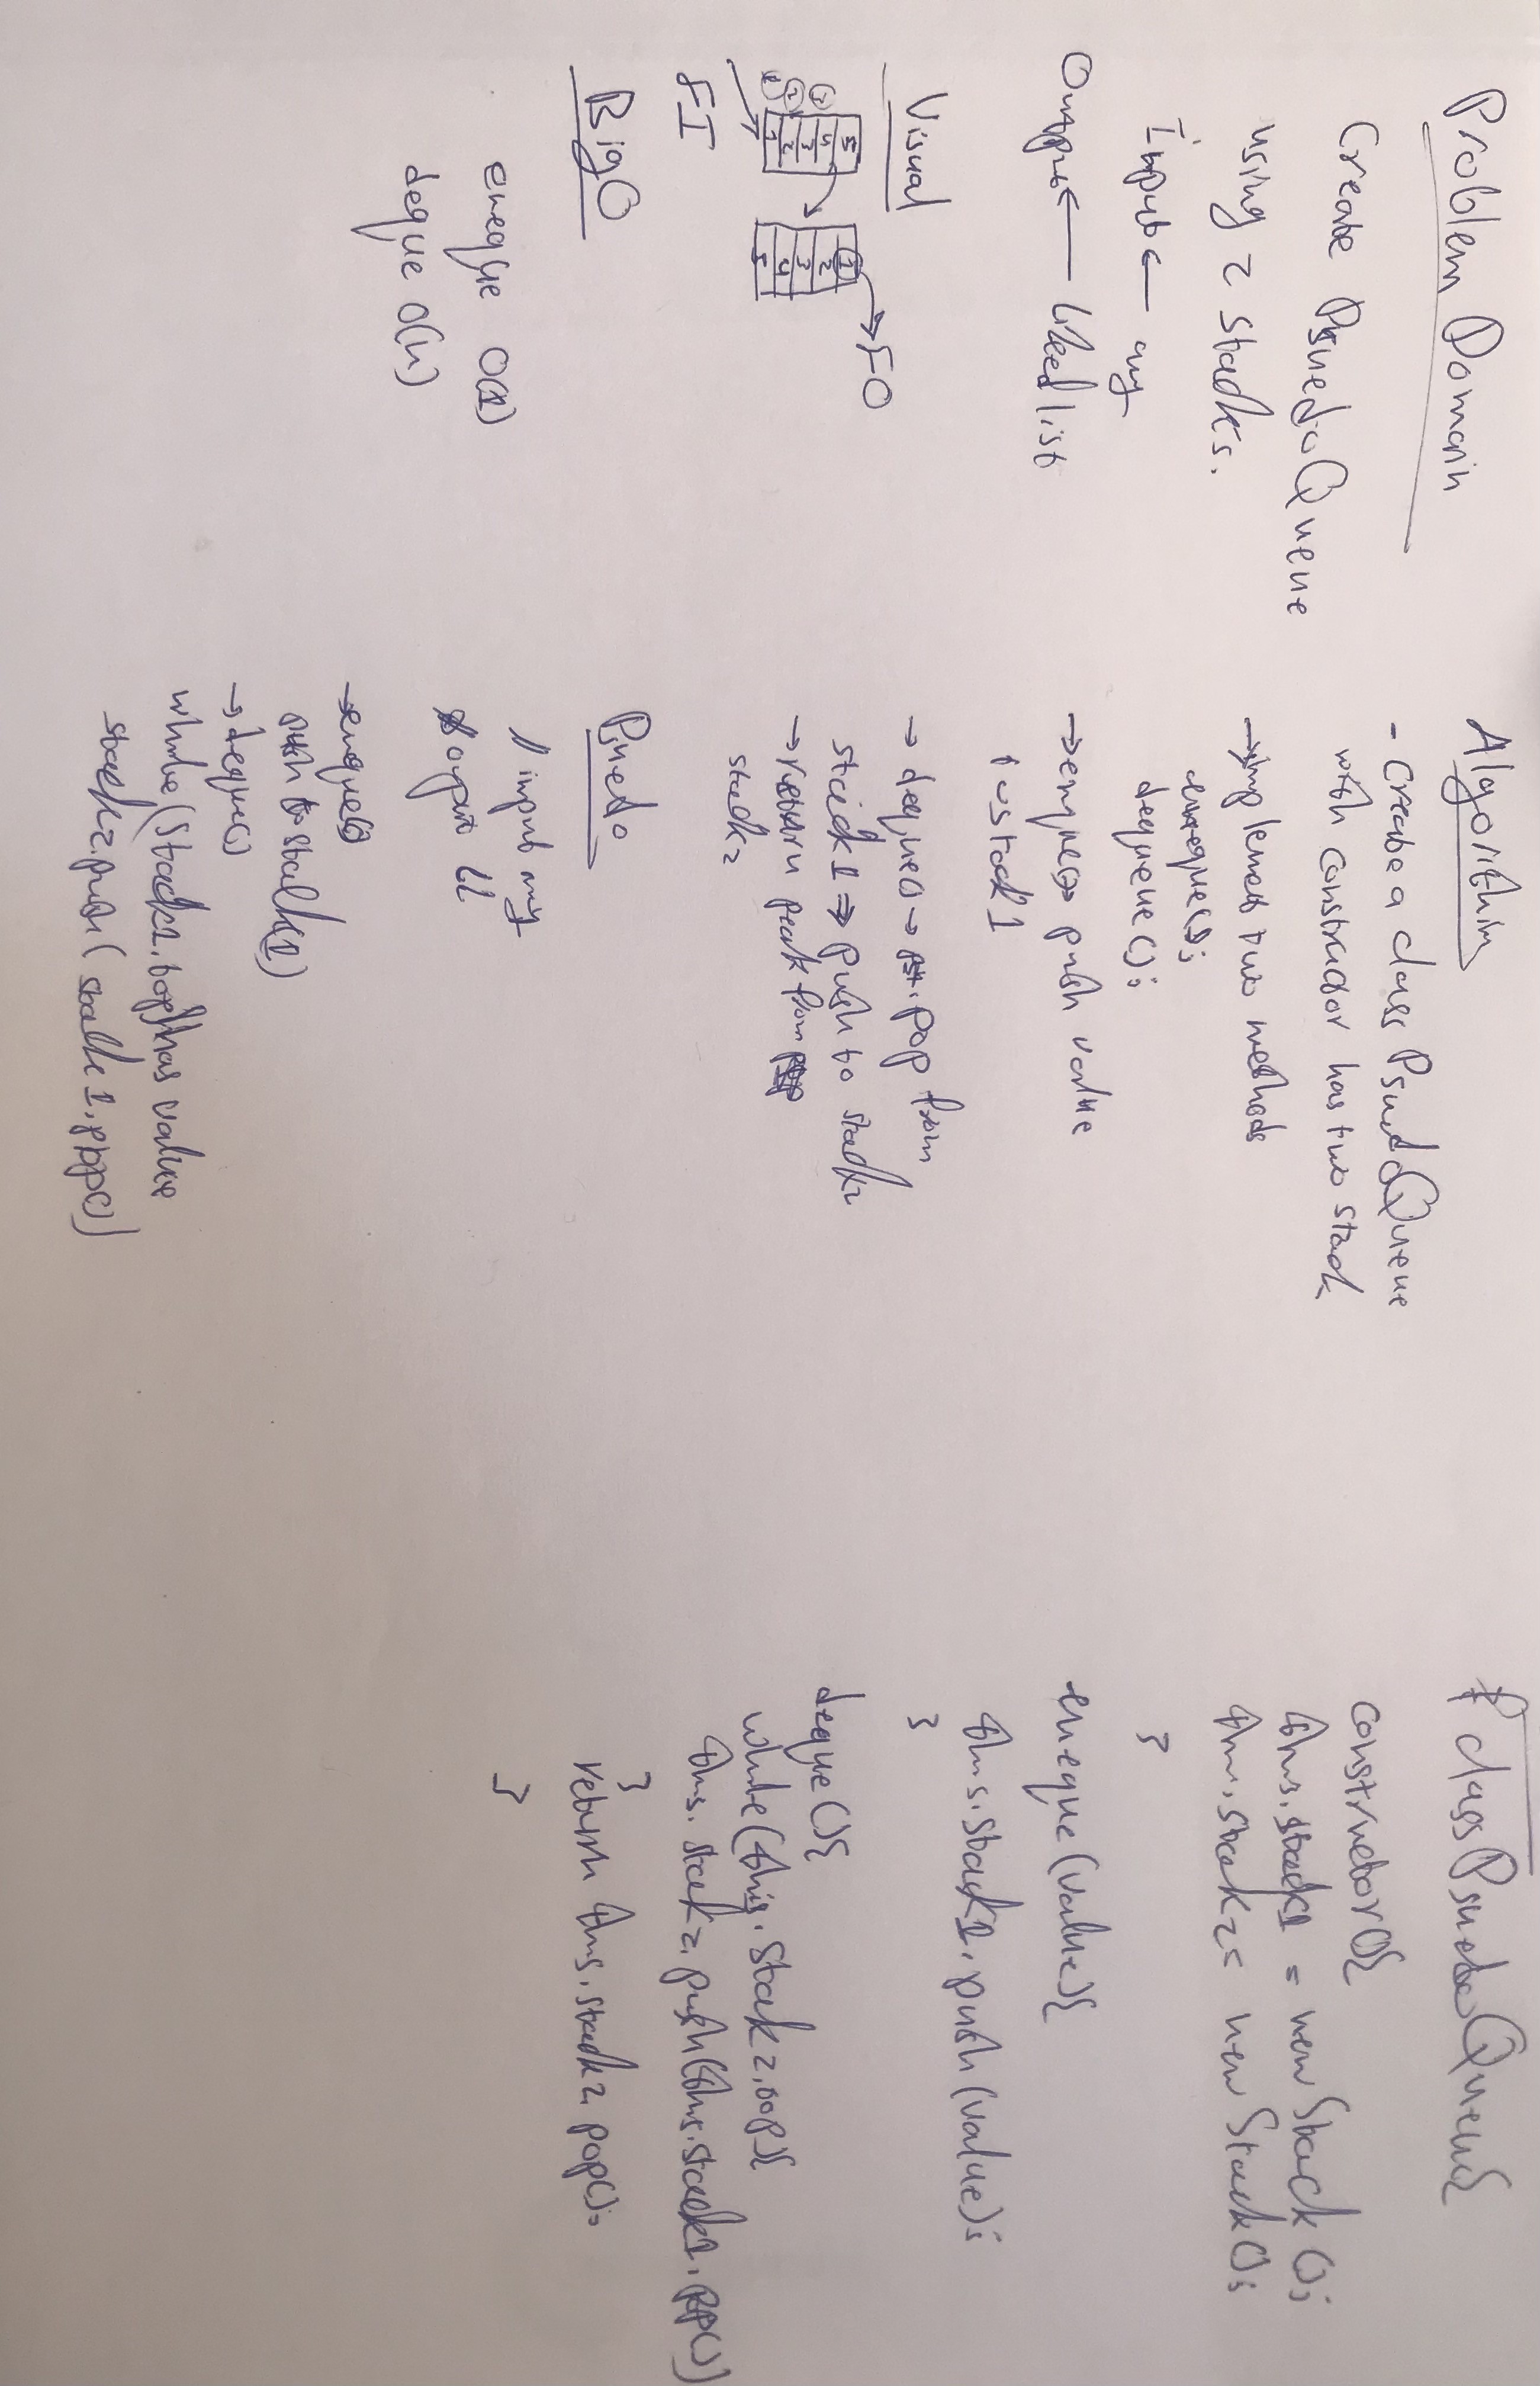 Problem Domain
Create PsuedoQueue
using 2 stacks.
Input ← any
Output ← likedlist
Visual
FO
5
1
2
3
4
5
FI
Big O
eneque O(1)
deque O(n)
Algorithim
- Create a class PsuedoQueue
with constructor has two stack
→ implement two methods
eneque();
dequeue();
→ enque() → push value
to stack1
→ deque() → pop from
stack1 ⇒ push to stack2
→ return peak from
stack2
Psuedo
// input any
output LL
→ enque()
push to stack(1)
→ deque()
while (Stack1.top) has value
stack2.push( stack1.pop())
class PsuedoQueue{
constructor(){
this.stack1 = new Stack ();
this.stack2 = new Stack();
}
eneque (value){
this.stack1.push(value);
}
deque (){
while (this.Stack2.top){
this.stack2.push(this.stack1.pop())
}
return this.stack2.pop();
}